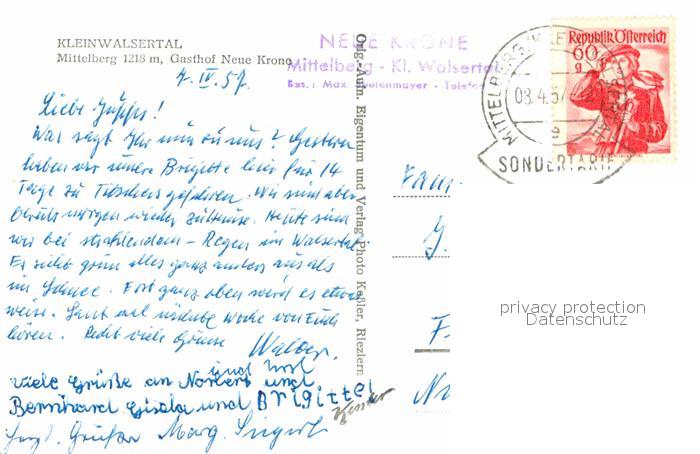 KLEINWALSERTAL
Mittelberg 1218 m, Gasthof Neue Krone
NEUE KRONE
Mittelberg - Kl. Walsertal
Bes.: Max
7. IV. 57.
Liebe
Was sagt Ihr nun zu uns? Gestern
haben wir unsere Brigitte hier für 14
Tage zu gefahren. Wir sind aber
bereits morgen wieder zuhause. Heute sind
wir bei strahlendem - Regen im Walsertal.
Es sieht grün alles ganz anders aus als
im Schnee. Erst ganz oben wird es etwas
weiss. Laßt mal nächste Woche von Euch
hören. Recht viele Grüsse
und
viele Grüße an Norbert und
Bernhard Gisela und Brigitte
Herzl. Grüße Marg.
Orig.-Aufn. Eigentum und Verlag Photo Keßler, Riezlern
Fam
J.
F
Republik Österreich
60
g
MITTELBERG
08.4.57
e
SONDERTARIF
privacy protection
Datenschutz